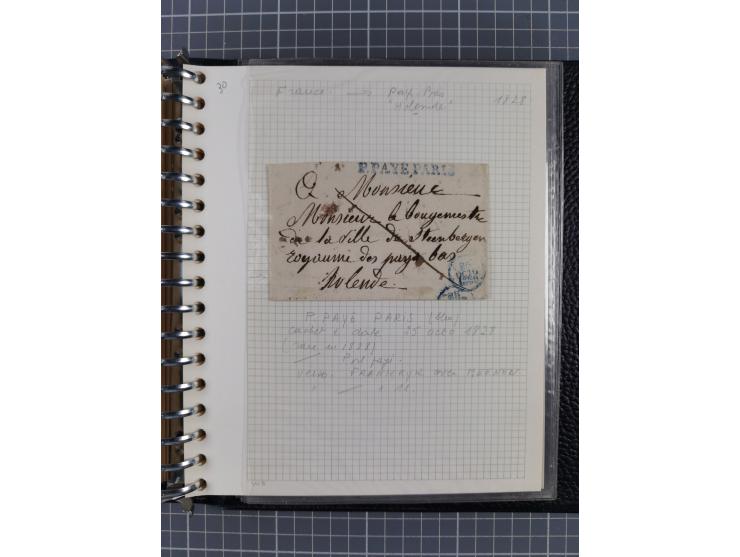 30
France → Pays Bas 1828
"Holende"
P.PAYE PARIS
A Monsieur
Monsieur le bougemestre
de la ville de Steenbergen
royaume des pays bas
holende
25
P. PAYÉ PARIS (bleu)
cachet à date 25 octo 1828
(rare in 1828)
Port payé.
verso: FRANKRYK over